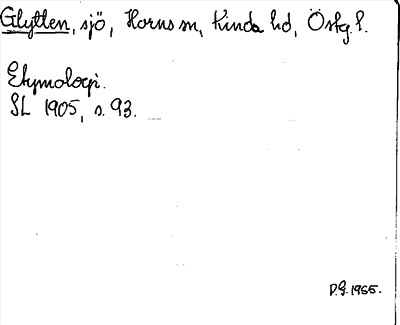 Glytten, sjö, Horns sn, Kinda hd, Östg. l.
Etymologi.
SL 1905, s. 93.
P.G. 1955.